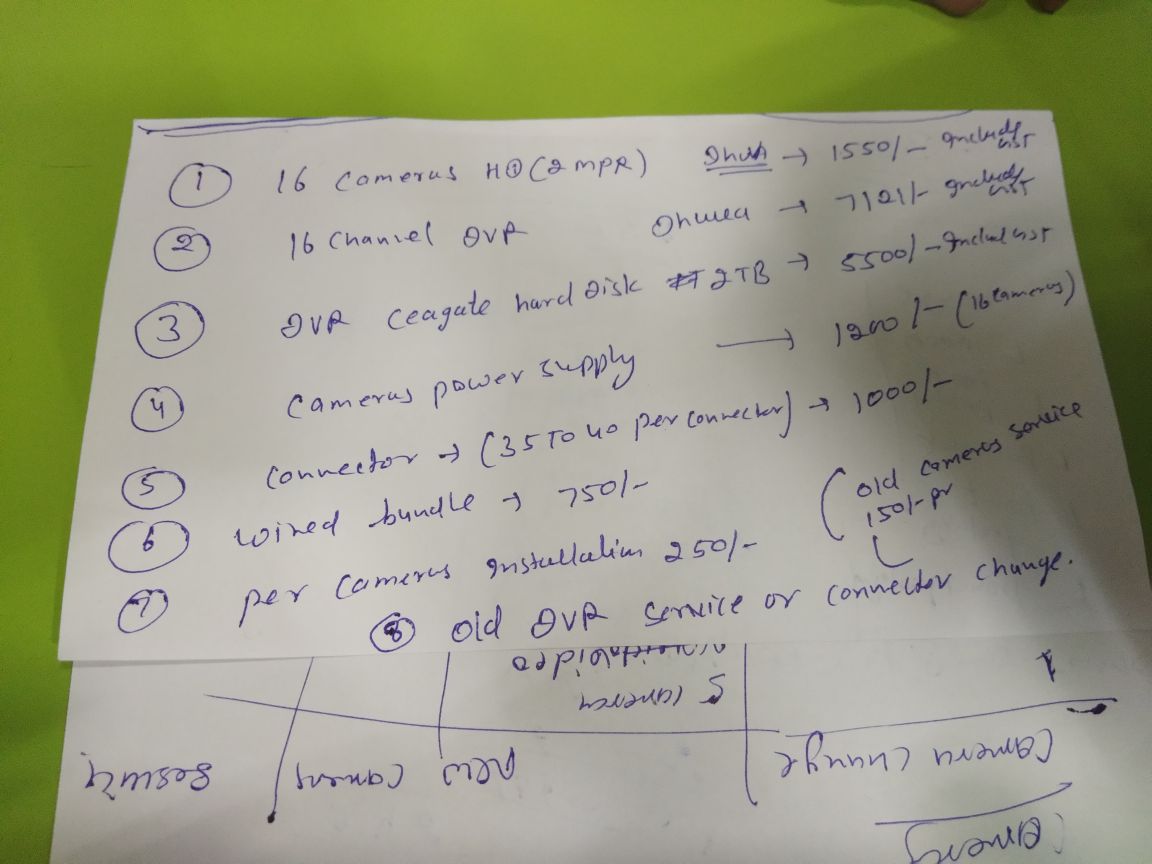 1 16 Cameras HD (2 MPR) Dhua → 1550/- Include GST
2 16 Channel DVR Dhuwa → 7121/- Include GST
3 DVR Ceagate hard Disk 2TB → 5500/- Includ GST
4 Cameras power supply → 1200/- (16 Cameras)
5 Connector → (35 TO 40 Per Connector) → 1000/-
6 wired bundle → 750/-
7 per Cameras Installation 250/-
(old Cameras service
150/- pr
8 old DVR Service or Connector Change.
5 Camera
1
Camera Change
New
Camera
Camera